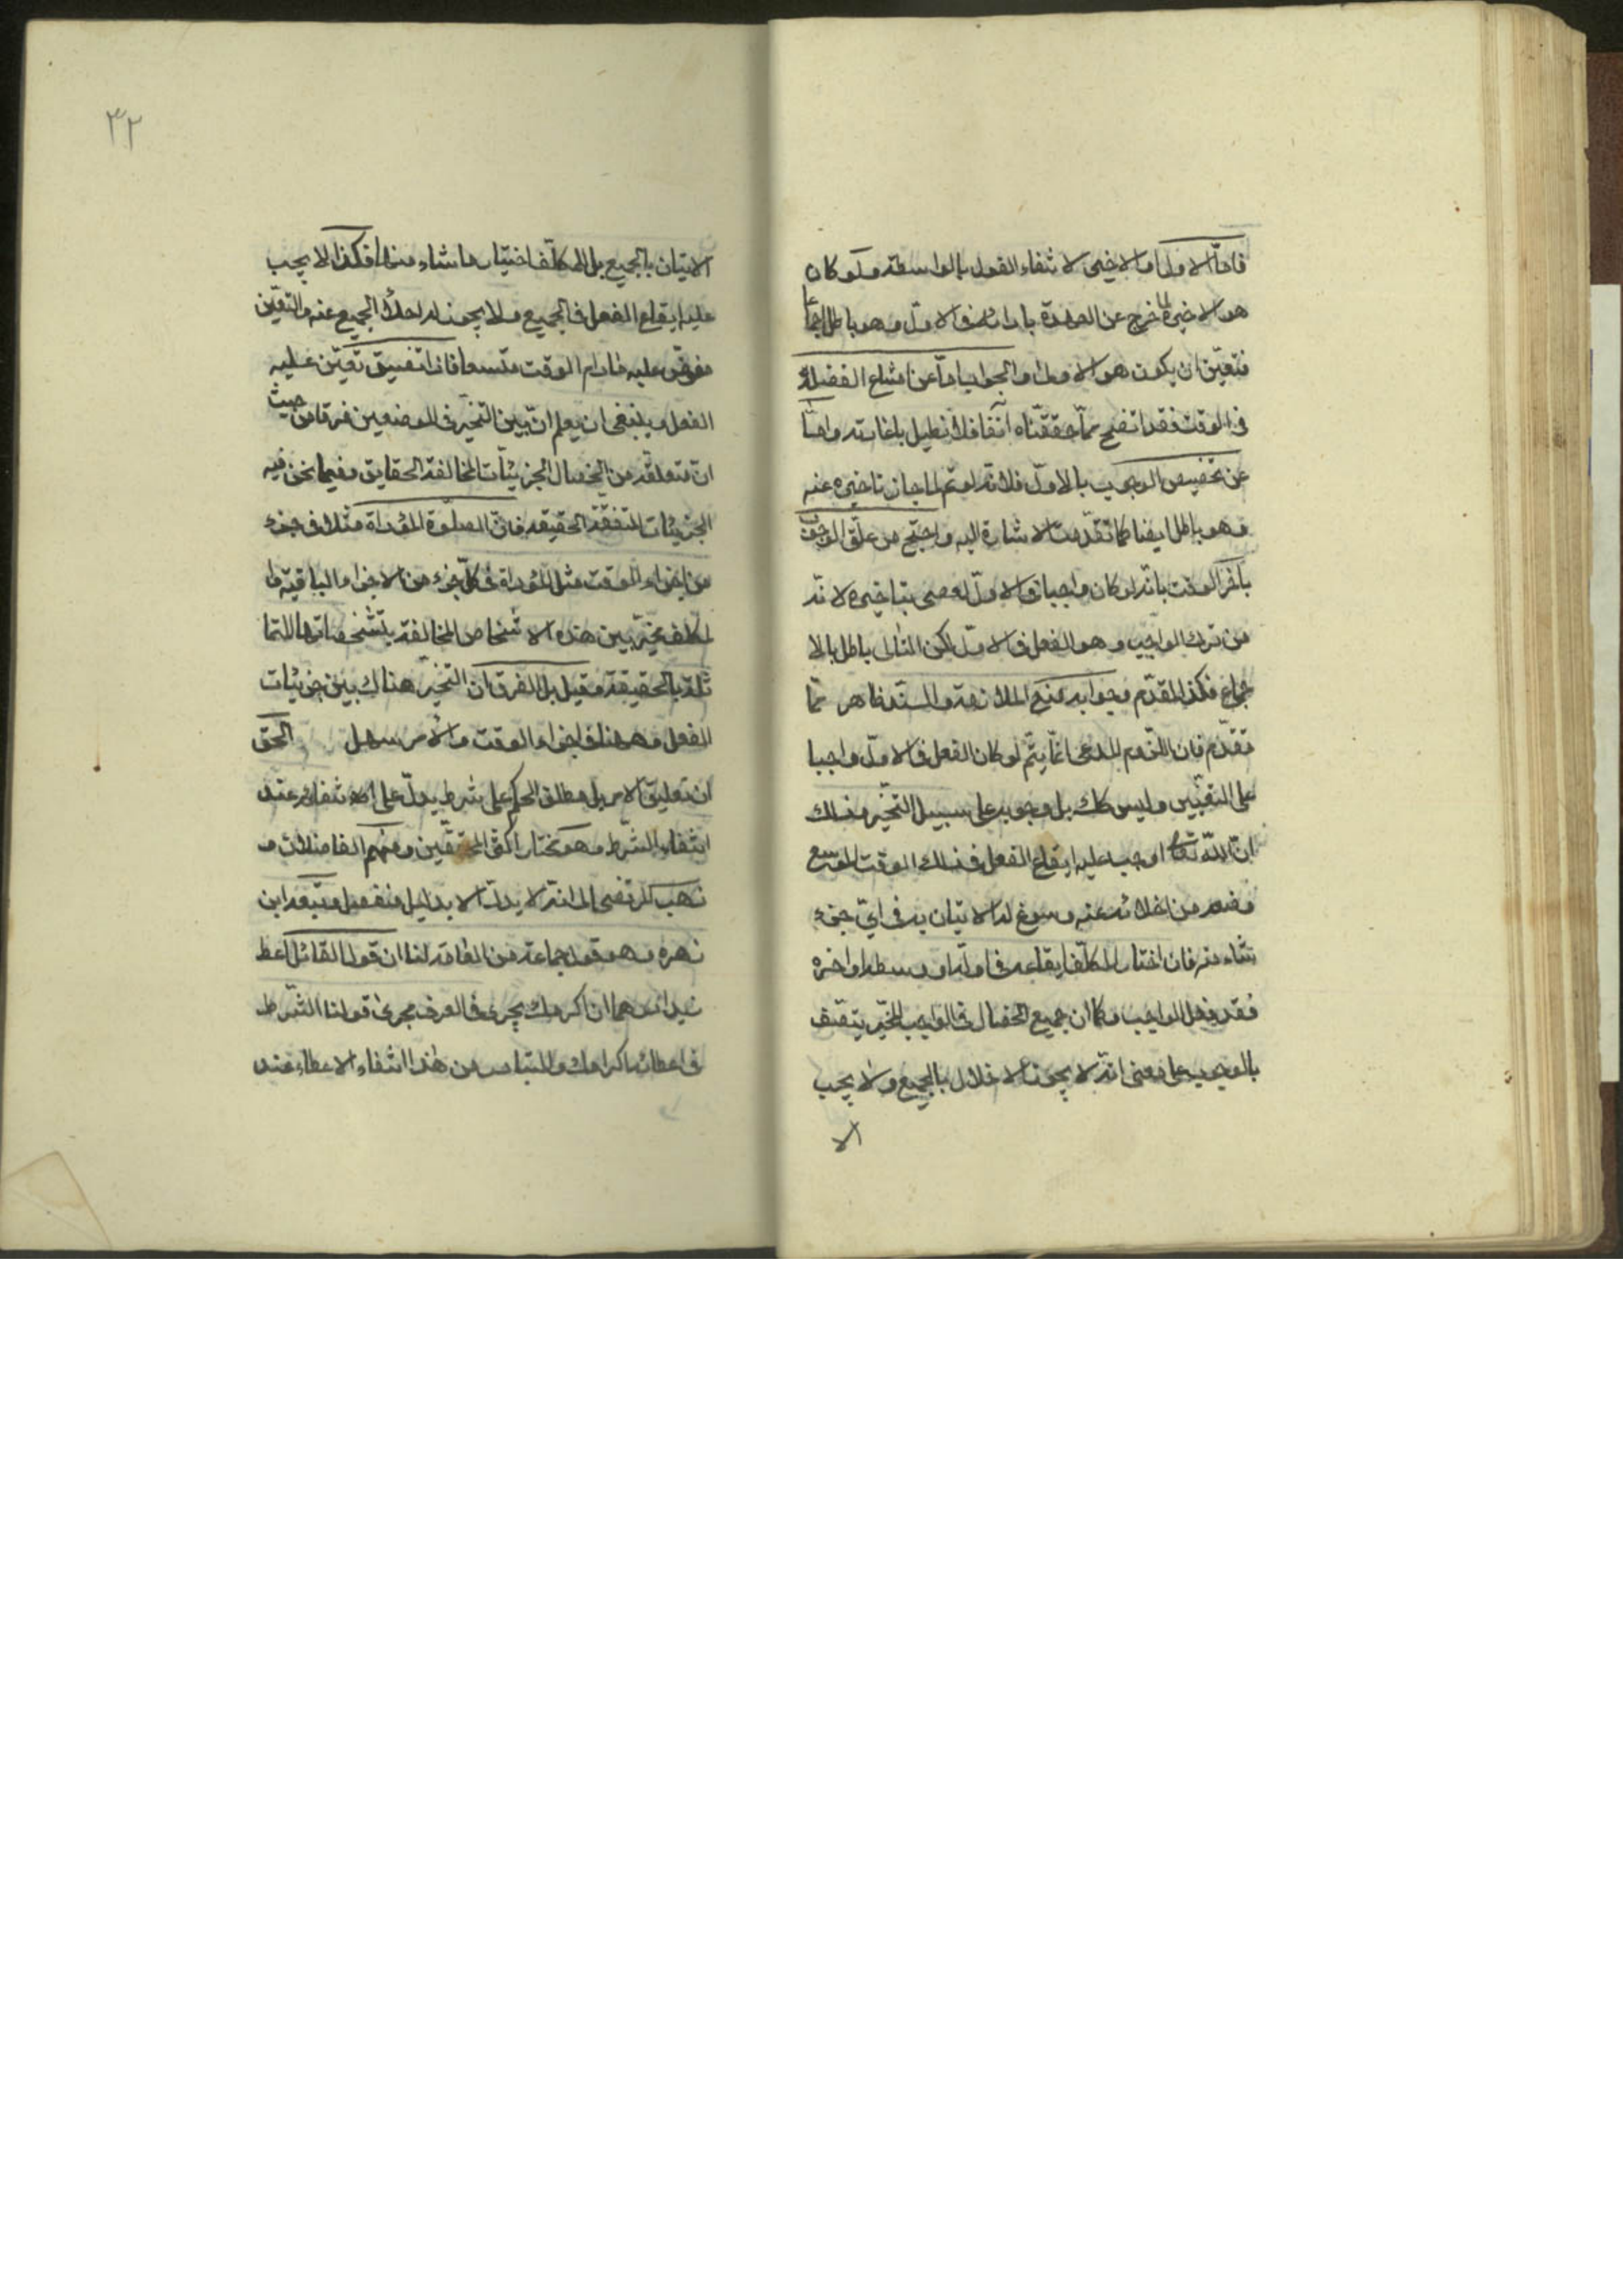 فاما الاول او الاخير لانتفاء القول بالواسطة ولو كان
هو الاخير لما خرج عن العهدة بادائه فى الاول وهو باطل اجماعا
فتعيّن ان يكون هو الاول والجواب اما عن امتناع الفضلة
فى الوقت فقد اتضح مما حققناه آنفا فلا نطيل باعادته واما
عن تخصيص الوجوب بالاول فلانه لو تم لما جاز تاخيره عنه
وهو باطل ايضا كما تقدمت الاشارة اليه واحتج من علق الوجوب
باخر الوقت بانه لو كان واجبا فى الاول لعصى بتاخيره لانه
من ترك الواجب وهو الفعل فى الاول لكن التالى باطل بالا
جماع فكذا المقدم وجوابه منع الملازمة والسند ظاهر مما
تقدم فان اللزوم المدعى انما يتم لو كان الفعل فى الاول واجبا
على التعيين وليس كك بل وجوبه على سبيل التخير وذلك
ان الله تعالى اوجب عليه ايقاع الفعل فى ذلك الوقت الموسع
ومنعه من اخلائه عنه وسوغ له الاتيان به فى اى جزء
شاء منه فان اختار المكلف ايقاعه فى اوله او وسطه او اخره
فقد فعل الواجب وكما ان جميع الخصال فى الواجب المخير يتصف
بالوجوب على معنى انه لا يجوز الاخلال بالجميع ولا يجب
الا
٣٢
الاتيان بالجميع بل للمكلف اختيار ما شاء منها فكذا لا يجب
عليه ايقاع الفعل فى الجميع ولا يجوز له اخلاء الجميع عنه والتعيين
مفوض عليه مادام الوقت متسعا فاذا تضيق تعين عليه
الفعل وينبغى ان يعلم ان بين التخير فى الموضعين فرقا من حيث
ان متعلقه من الخصال الجزئيات المخالفة الحقايق وفيما نحن فيه
الجزئيات المتفقة الحقيقه فان الصلوة المؤداة مثلا فى جزء
من اجزاء الوقت مثل المؤداة فى كل جزء من الاجزاء الباقية وا
لمكلف مخير بين هذه الاشخاص المخالفة بتشخصاتها المتما
ثلة بالحقيقة وقيل بل الفرق ان التخير هناك بين جزئيات
الفعل وههنا فى اجزاء الوقت والامر سهل الحق
ان تعليق الامر بل مطلق الحكم على شرط يدل على انتفائه عند
انتفاء الشرط وهو مختار اكثر المحققين ومنهم الفاضلان و
ذهب المرتضى الى انه لا يدل الا بدليل منفصل وتبعه ابن
زهره وهو قول جماعة من العامة لنا ان قول القائل اعط
زيدا درهما ان اكرمك يجرى فى العرف مجرى قولنا الشرط
فى اعطائه اكرامك والمتبادر من هذا انتفاء الاعطاء عند